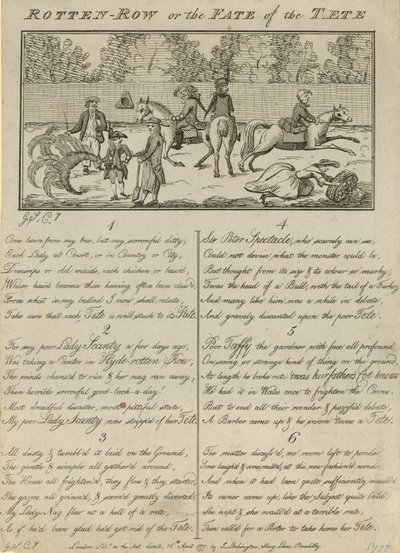 ROTTEN-ROW or the FATE of the TETE
G.S. C. I
1
Come learn from my true, but my sorrowful ditty,
Each Lady at Court, or in Country or City,
Demireps or old maids, each chicken or bawd,
Whose hair's become thin having often been claw'd,
From what in my ballad I now shall relate,
Take care that each Tete is well stuck to its Pate.
2
For my poor Lady Scanty a few days ago,
Was taking a Canter in Hyde-rotten Row,
The winds chanc'd to rise & her nag ran away,
Then horrible sorrowful good-lack-a day.
Most dreadful disaster, most pitiful state,
My poor Lady Scanty was stripp'd of her Tete.
3
All dusty & tumbl'd it laid on the Ground,
The gentle & simple all gather'd around,
The Horses all frighten'd, they flew & they started,
The gazers all grinn'd, & seem'd greatly diverted,
My Lady's Nag flew at a hell of a rate,
As if he'd been glad he'd got rid of the Tete.
4
Sir Peter Spectacle, who scarcely can see,
Could not devise, what the monster could be,
But thought from its size & its colour so murky,
'Twas the head of a Bull, with the tail of a Turkey,
And many like him, was a while in debate,
And gravely discanted upon the poor Tete.
5
Poor Taffy the gardner with face all profound,
On seeing so strange kind of thing on the ground,
At length he looks out, 'twas hur father's
He had it in Wales once to frighten the Crows.
But to end all their wonder & puzzl'd debate,
A Barber came up & he swore 'twas a Tete.
6
The matter disclos'd, no room left to ponder,
Some laugh'd & some smil'd, at this new fashion'd wonder,
And when it had been quite sufficiently
Its owner came up, like the subject quite bald,
She wept & she wail'd at a terrible rate,
Then call'd for a Porter to take home her Tete.
G.S. C. I
London Publ. as the Act directs, 16th April 1777, by J. Lockington, Shug Lane, Piccadilly
1777